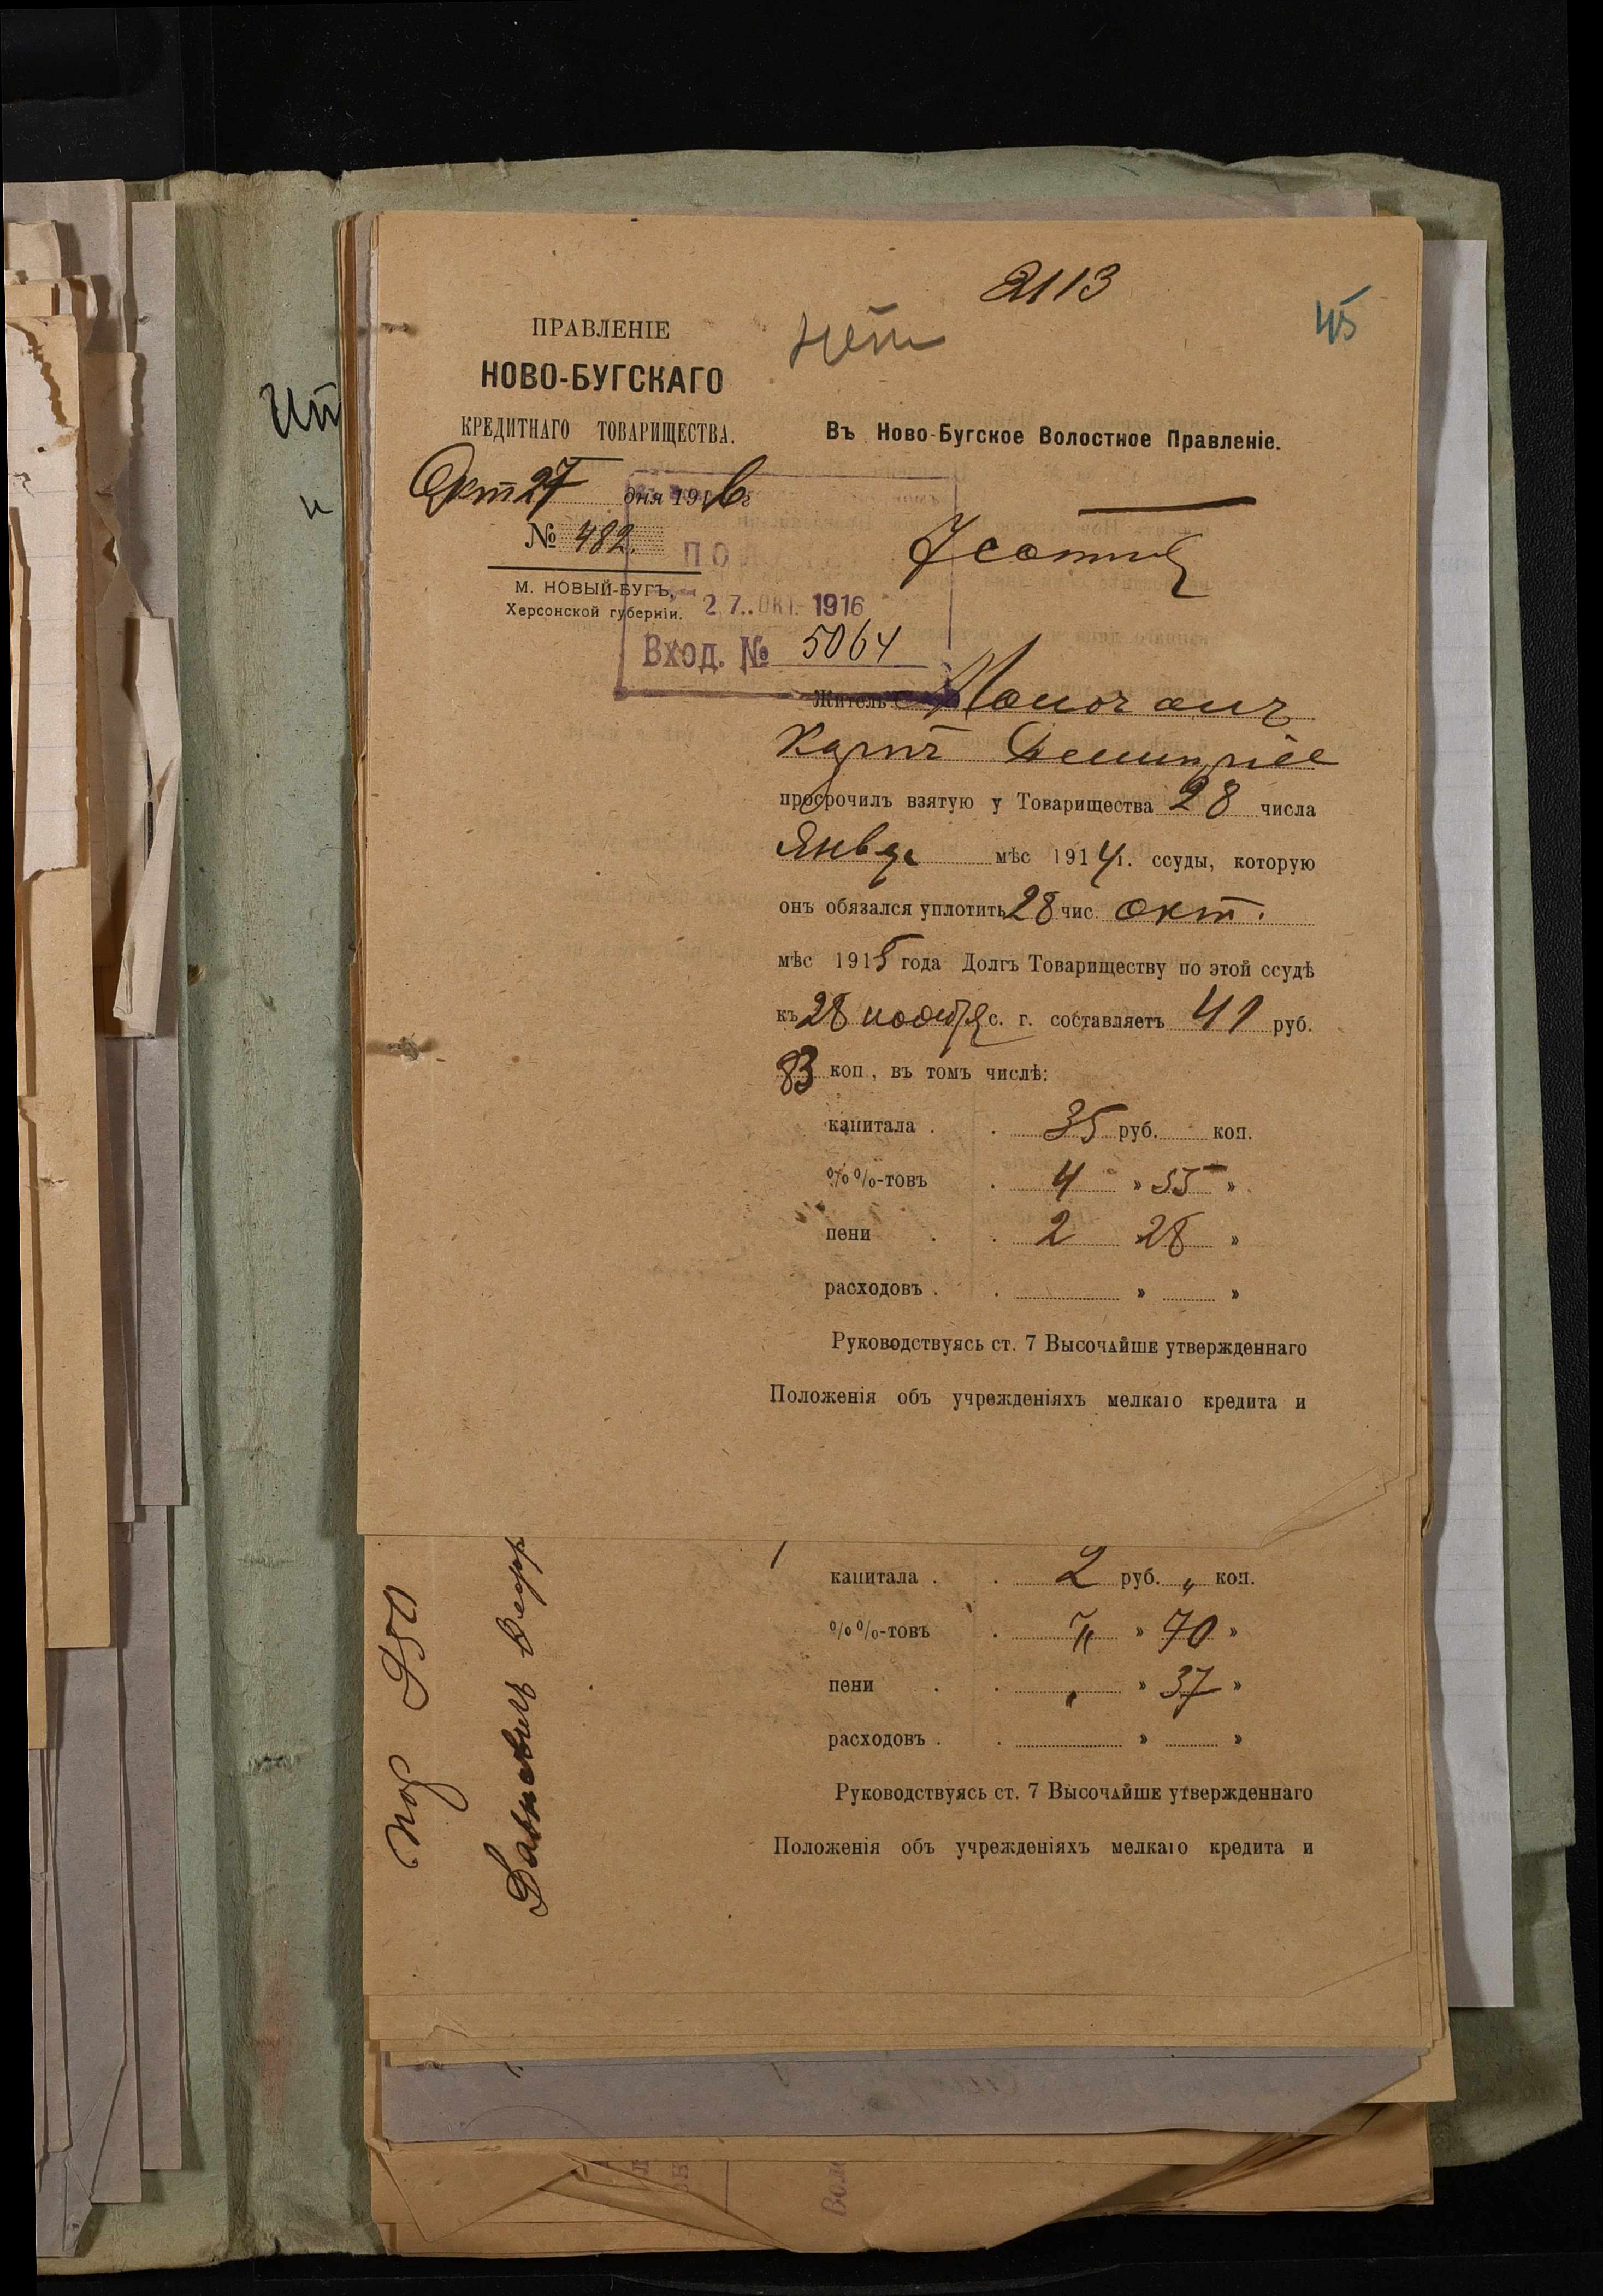 2113
45
нѣт
ПРАВЛЕНІЕ
НОВО-БУГСКАГО
КРЕДИТНАГО ТОВАРИЩЕСТВА.
Окт 27 дня 1916 г
№ 482.
М. НОВЫЙ-БУГЪ,
Херсонской губерніи.
Въ Ново-Бугское Волостное Правленіе.
27. ОКТ. 1916
Вход. № 5064
Житель
просрочилъ взятую у Товарищества 28 числа
Январ мѣс 1914 г. ссуды, которую
онъ обязался уплотить 28 чис. окт.
мѣс 1915 года Долгъ Товариществу по этой ссудѣ
къ 28 ноября с. г. составляетъ 41 руб.
83 коп, въ томъ числѣ:
капитала . . 35 руб. коп.
%%-товъ . 4 » 55 »
пени . . 2 » 28 »
расходовъ . . » »
Руководствуясь ст. 7 Высочайше утвержденнаго
Положенія объ учрежденіяхъ мелкаго кредита и
капитала . . 2 руб. „ коп.
%%-товъ . „ » 70 »
пени . . „ » 37 »
расходовъ . . » »
Руководствуясь ст. 7 Высочайше утвержденнаго
Положенія объ учрежденіяхъ мелкаго кредита и